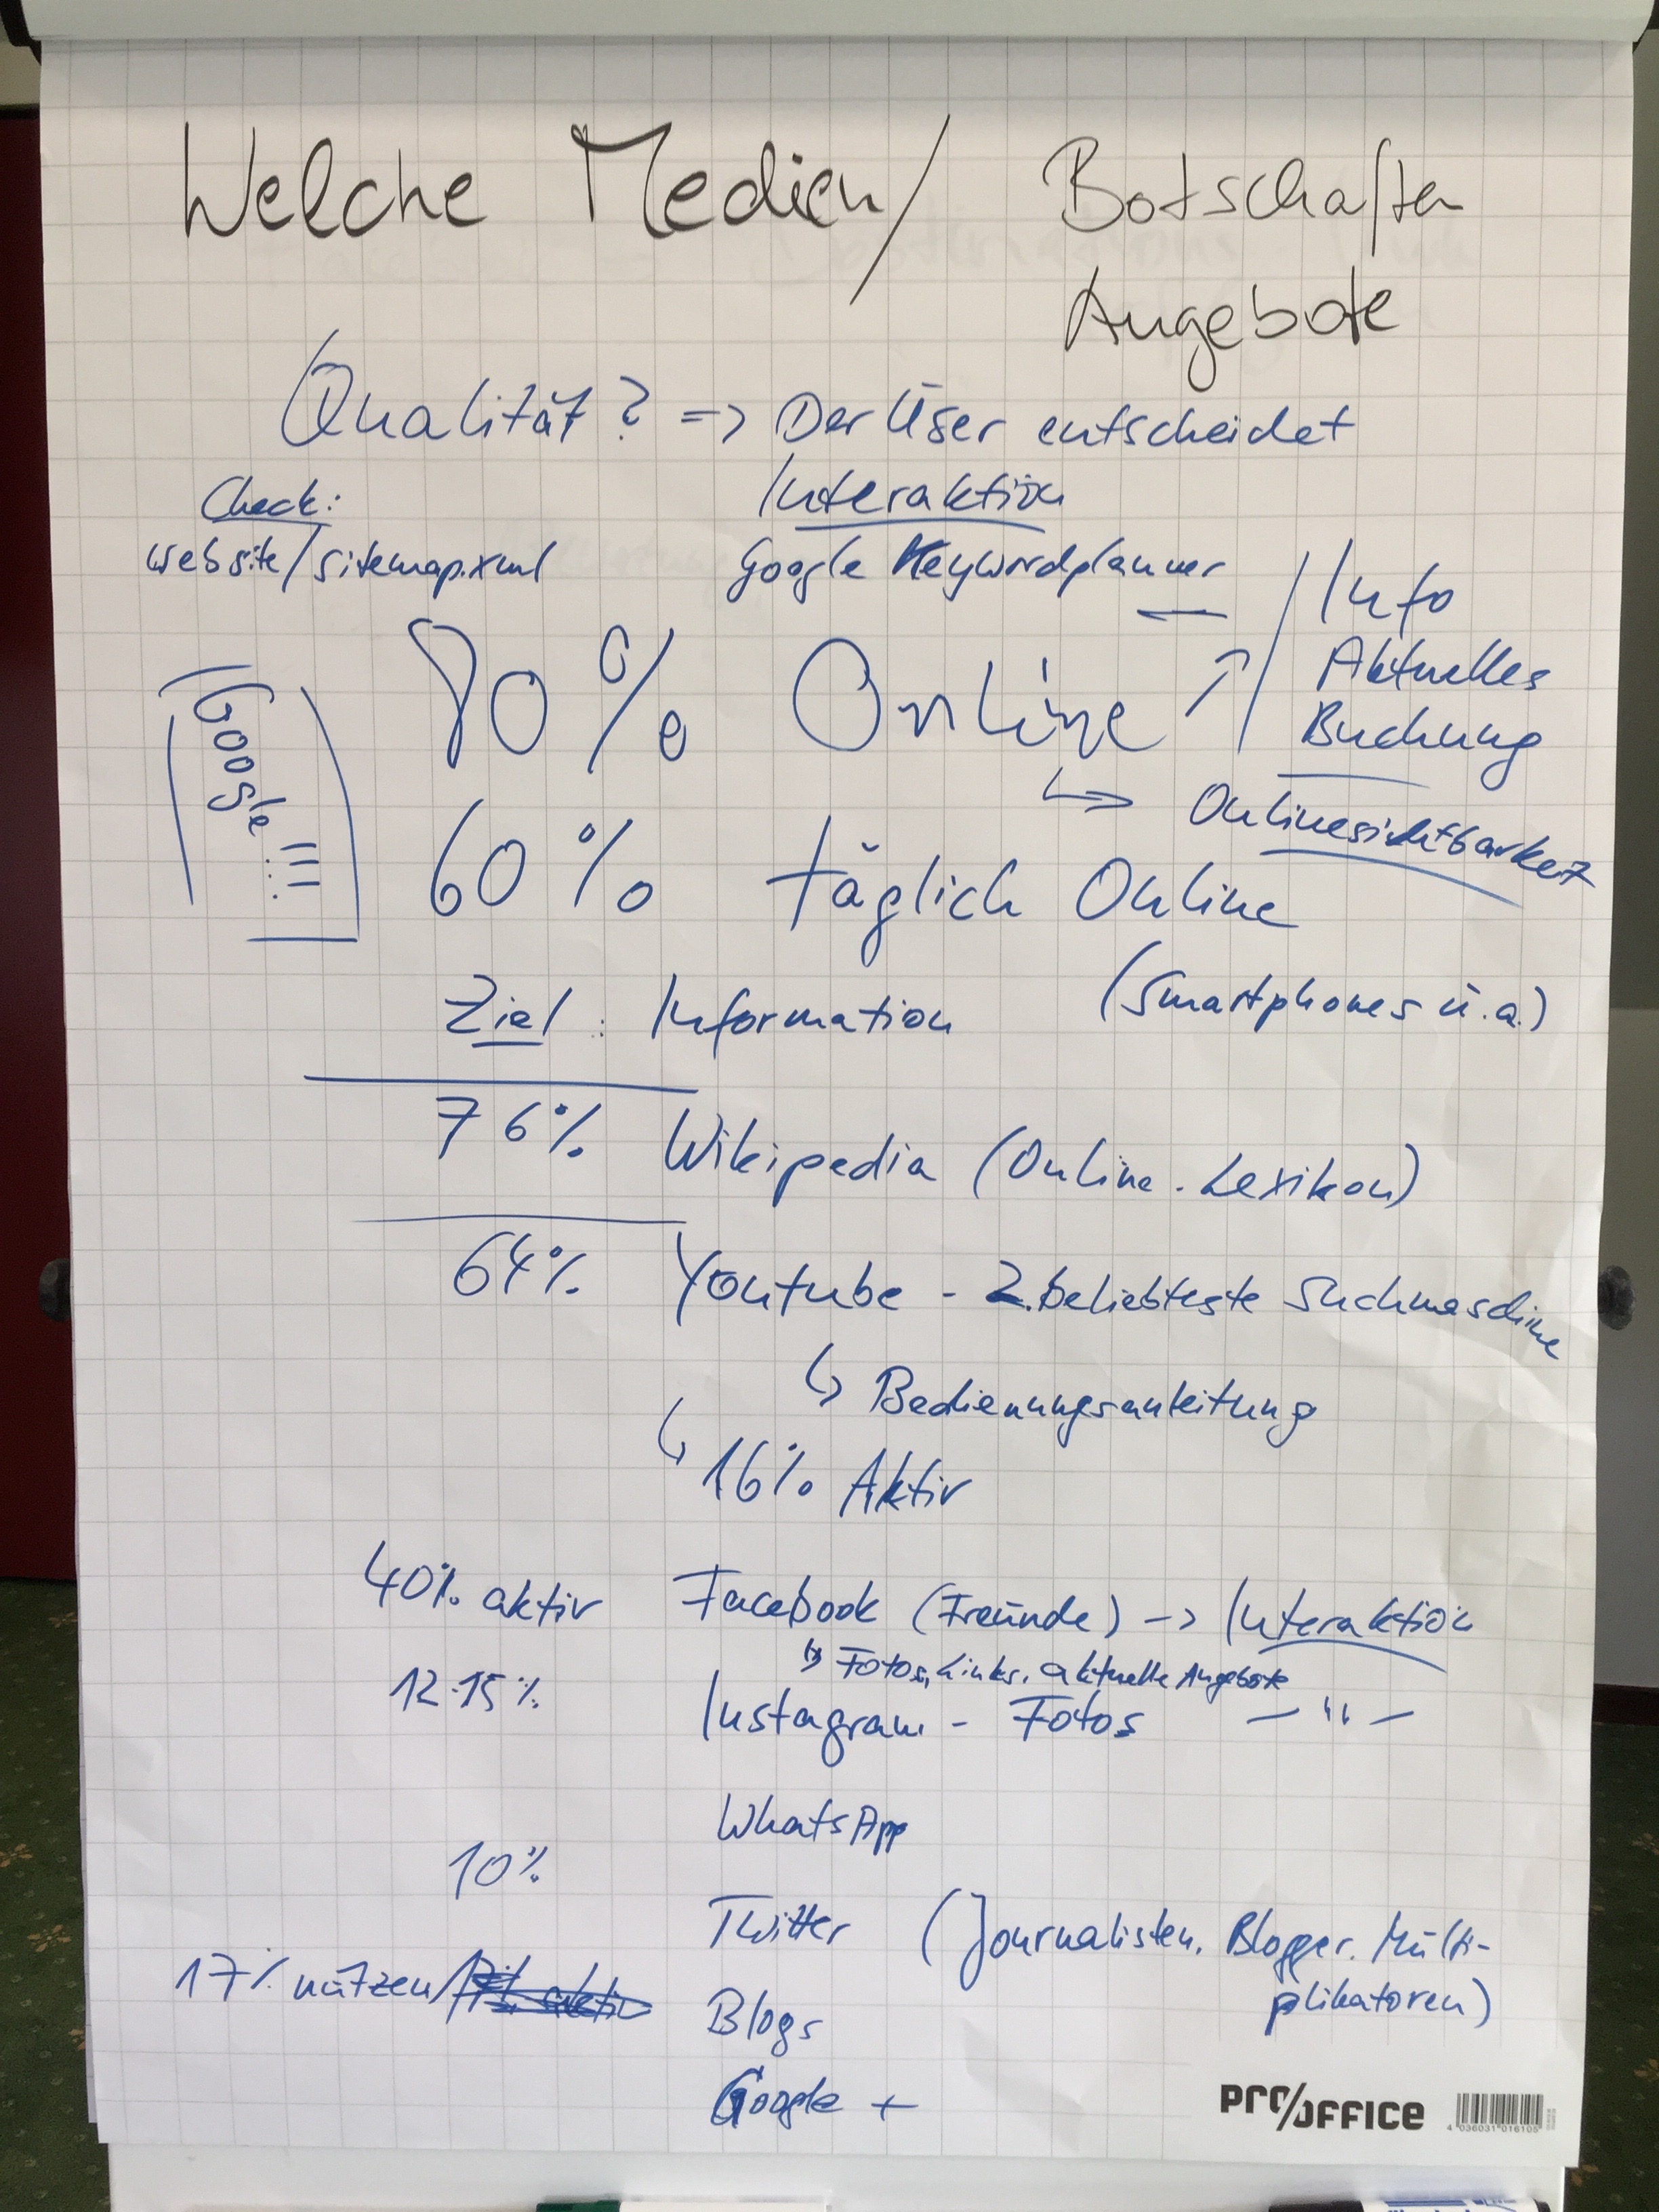 Welche Medien / Botschaften
Angebote
Qualität? => Der User entscheidet
Check: Interaktion
website/sitemap.xml Google Keywordplanner
80% Online ↗ / Info
Aktuelles
Buchung
↳ Onlinesichtbarkeit
Google!!!
60% täglich Online
Ziel: Information (Smartphones u.a.)
76% Wikipedia (Online-Lexikon)
64% Youtube - 2. beliebteste Suchmaschine
↳ Bedienungsanleitung
↳ 16% Aktiv
40% aktiv Facebook (Freunde) -> Interaktion
↳ Fotos, Links, aktuelle Angebote
12-15% Instagram - Fotos — " —
WhatsApp
10%
Twitter (Journalisten, Blogger, Multi-
plikatoren)
17% nutzen/
Blogs
Google +
PRO/OFFICE
4 036031 016105